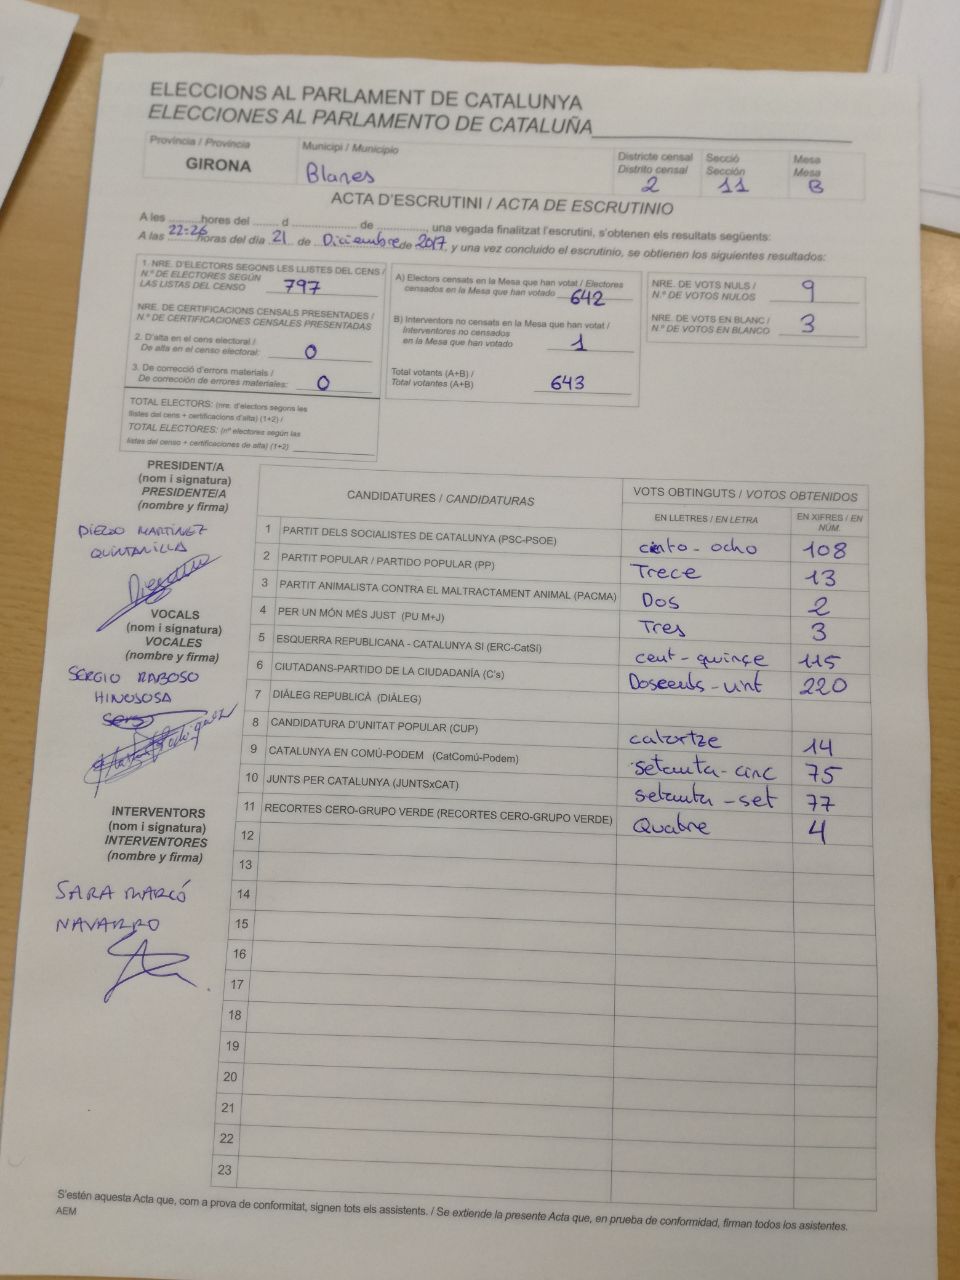 ELECCIONS AL PARLAMENT DE CATALUNYA
ELECCIONES AL PARLAMENTO DE CATALUÑA
Província / Provincia
GIRONA
Municipi / Municipio
Blanes
Districte censal
Distrito censal
2
Secció
Sección
11
Mesa
Mesa
B
ACTA D'ESCRUTINI / ACTA DE ESCRUTINIO
A les ..........hores del ........ d ........................ de ..............., una vegada finalitzat l'escrutini, s'obtenen els resultats següents:
A las 22:26 horas del día 21 de Diciembre de 2017, y una vez concluido el escrutinio, se obtienen los siguientes resultados:
1. NRE. D'ELECTORS SEGONS LES LLISTES DEL CENS /
N.º DE ELECTORES SEGÚN
LAS LISTAS DEL CENSO 797
NRE. DE CERTIFICACIONS CENSALS PRESENTADES /
N.º DE CERTIFICACIONES CENSALES PRESENTADAS
2. D'alta en el cens electoral /
De alta en el censo electoral: 0
3. De correcció d'errors materials /
De corrección de errores materiales: 0
TOTAL ELECTORS: (nre. d'electors segons les
llistes del cens + certificacions d'alta) (1+2) /
TOTAL ELECTORES: (nº electores según las
listas del censo + certificaciones de alta) (1+2)
A) Electors censats en la Mesa que han votat / Electores
censados en la Mesa que han votado 642
B) Interventors no censats en la Mesa que han votat /
Interventores no censados
en la Mesa que han votado 1
Total votants (A+B) /
Total votantes (A+B) 643
NRE. DE VOTS NULS /
N.º DE VOTOS NULOS 9
NRE. DE VOTS EN BLANC /
N.º DE VOTOS EN BLANCO 3
PRESIDENT/A
(nom i signatura)
PRESIDENTE/A
(nombre y firma)
DIEGO MARTINEZ
QUINTANILLA
VOCALS
(nom i signatura)
VOCALES
(nombre y firma)
SERGIO RABOSO
HINOJOSA
INTERVENTORS
(nom i signatura)
INTERVENTORES
(nombre y firma)
SARA MARCÓ
NAVARRO
CANDIDATURES / CANDIDATURAS
VOTS OBTINGUTS / VOTOS OBTENIDOS
EN LLETRES / EN LETRA
EN XIFRES / EN NÚM.
1 PARTIT DELS SOCIALISTES DE CATALUNYA (PSC-PSOE) ciento-ocho 108
2 PARTIT POPULAR / PARTIDO POPULAR (PP) Trece 13
3 PARTIT ANIMALISTA CONTRA EL MALTRACTAMENT ANIMAL (PACMA) Dos 2
4 PER UN MÓN MÉS JUST (PU M+J) Tres 3
5 ESQUERRA REPUBLICANA - CATALUNYA SI (ERC-CatSÍ) cent-quinçe 115
6 CIUTADANS-PARTIDO DE LA CIUDADANÍA (C's) Doscents-vint 220
7 DIÀLEG REPUBLICÀ (DIÀLEG)
8 CANDIDATURA D'UNITAT POPULAR (CUP) catortze 14
9 CATALUNYA EN COMÚ-PODEM (CatComú-Podem) setanta-cinc 75
10 JUNTS PER CATALUNYA (JUNTSxCAT) setanta-set 77
11 RECORTES CERO-GRUPO VERDE (RECORTES CERO-GRUPO VERDE) Quatre 4
12
13
14
15
16
17
18
19
20
21
22
23
S'estén aquesta Acta que, com a prova de conformitat, signen tots els assistents. / Se extiende la presente Acta que, en prueba de conformidad, firman todos los asistentes.
AEM